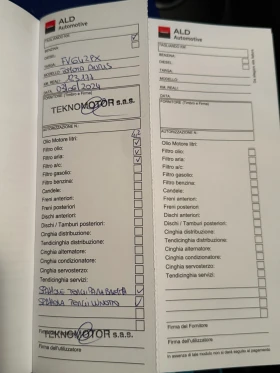 ALD
Automotive
TAGLIANDO KM.
BENZINA:
DIESEL:
TARGA:
MODELLO:
KM. REALI:
DATA
FORNITORE (Timbro e Firma)
TEKNOMOTOR s.a.s.
AUTORIZZAZIONE N.
Olio Motore litri:
Filtro olio:
Filtro aria:
Filtro a/c:
Filtro gasolio:
Filtro benzina:
Candele:
Freni anteriori:
Freni posteriori
Dischi anteriori:
Dischi / Tamburi posteriori:
Cinghia distribuzione:
Tendicinghia distribuzione:
Cinghia alternatore:
Cinghia condizionatore:
Cinghia servosterzo:
Tendicinghia servizi:
SPAZZOLE TERGI PARABREZZA
SPAZZOLA TERGI LUNOTTO
TEKNOMOTOR s.a.s.
Firma dell'utilizzatore
ALD
Automotive
TAGLIANDO KM.
BENZINA:
DIESEL:
TARGA:
MODELLO:
KM. REALI:
DATA
FORNITORE (Timbro e Firma)
AUTORIZZAZIONE N.
Olio Motore litri:
Filtro olio:
Filtro aria:
Filtro a/c:
Filtro gasolio:
Filtro benzina:
Candele:
Freni anteriori:
Freni posteriori
Dischi anteriori:
Dischi / Tamburi posteriori:
Cinghia distribuzione:
Tendicinghia distribuzione:
Cinghia alternatore:
Cinghia condizionatore:
Cinghia servosterzo:
Tendicinghia servizi:
Firma del Fornitore
Firma dell'utilizzatore
In assenza di tale modulo non si darà seguito al pagamento.